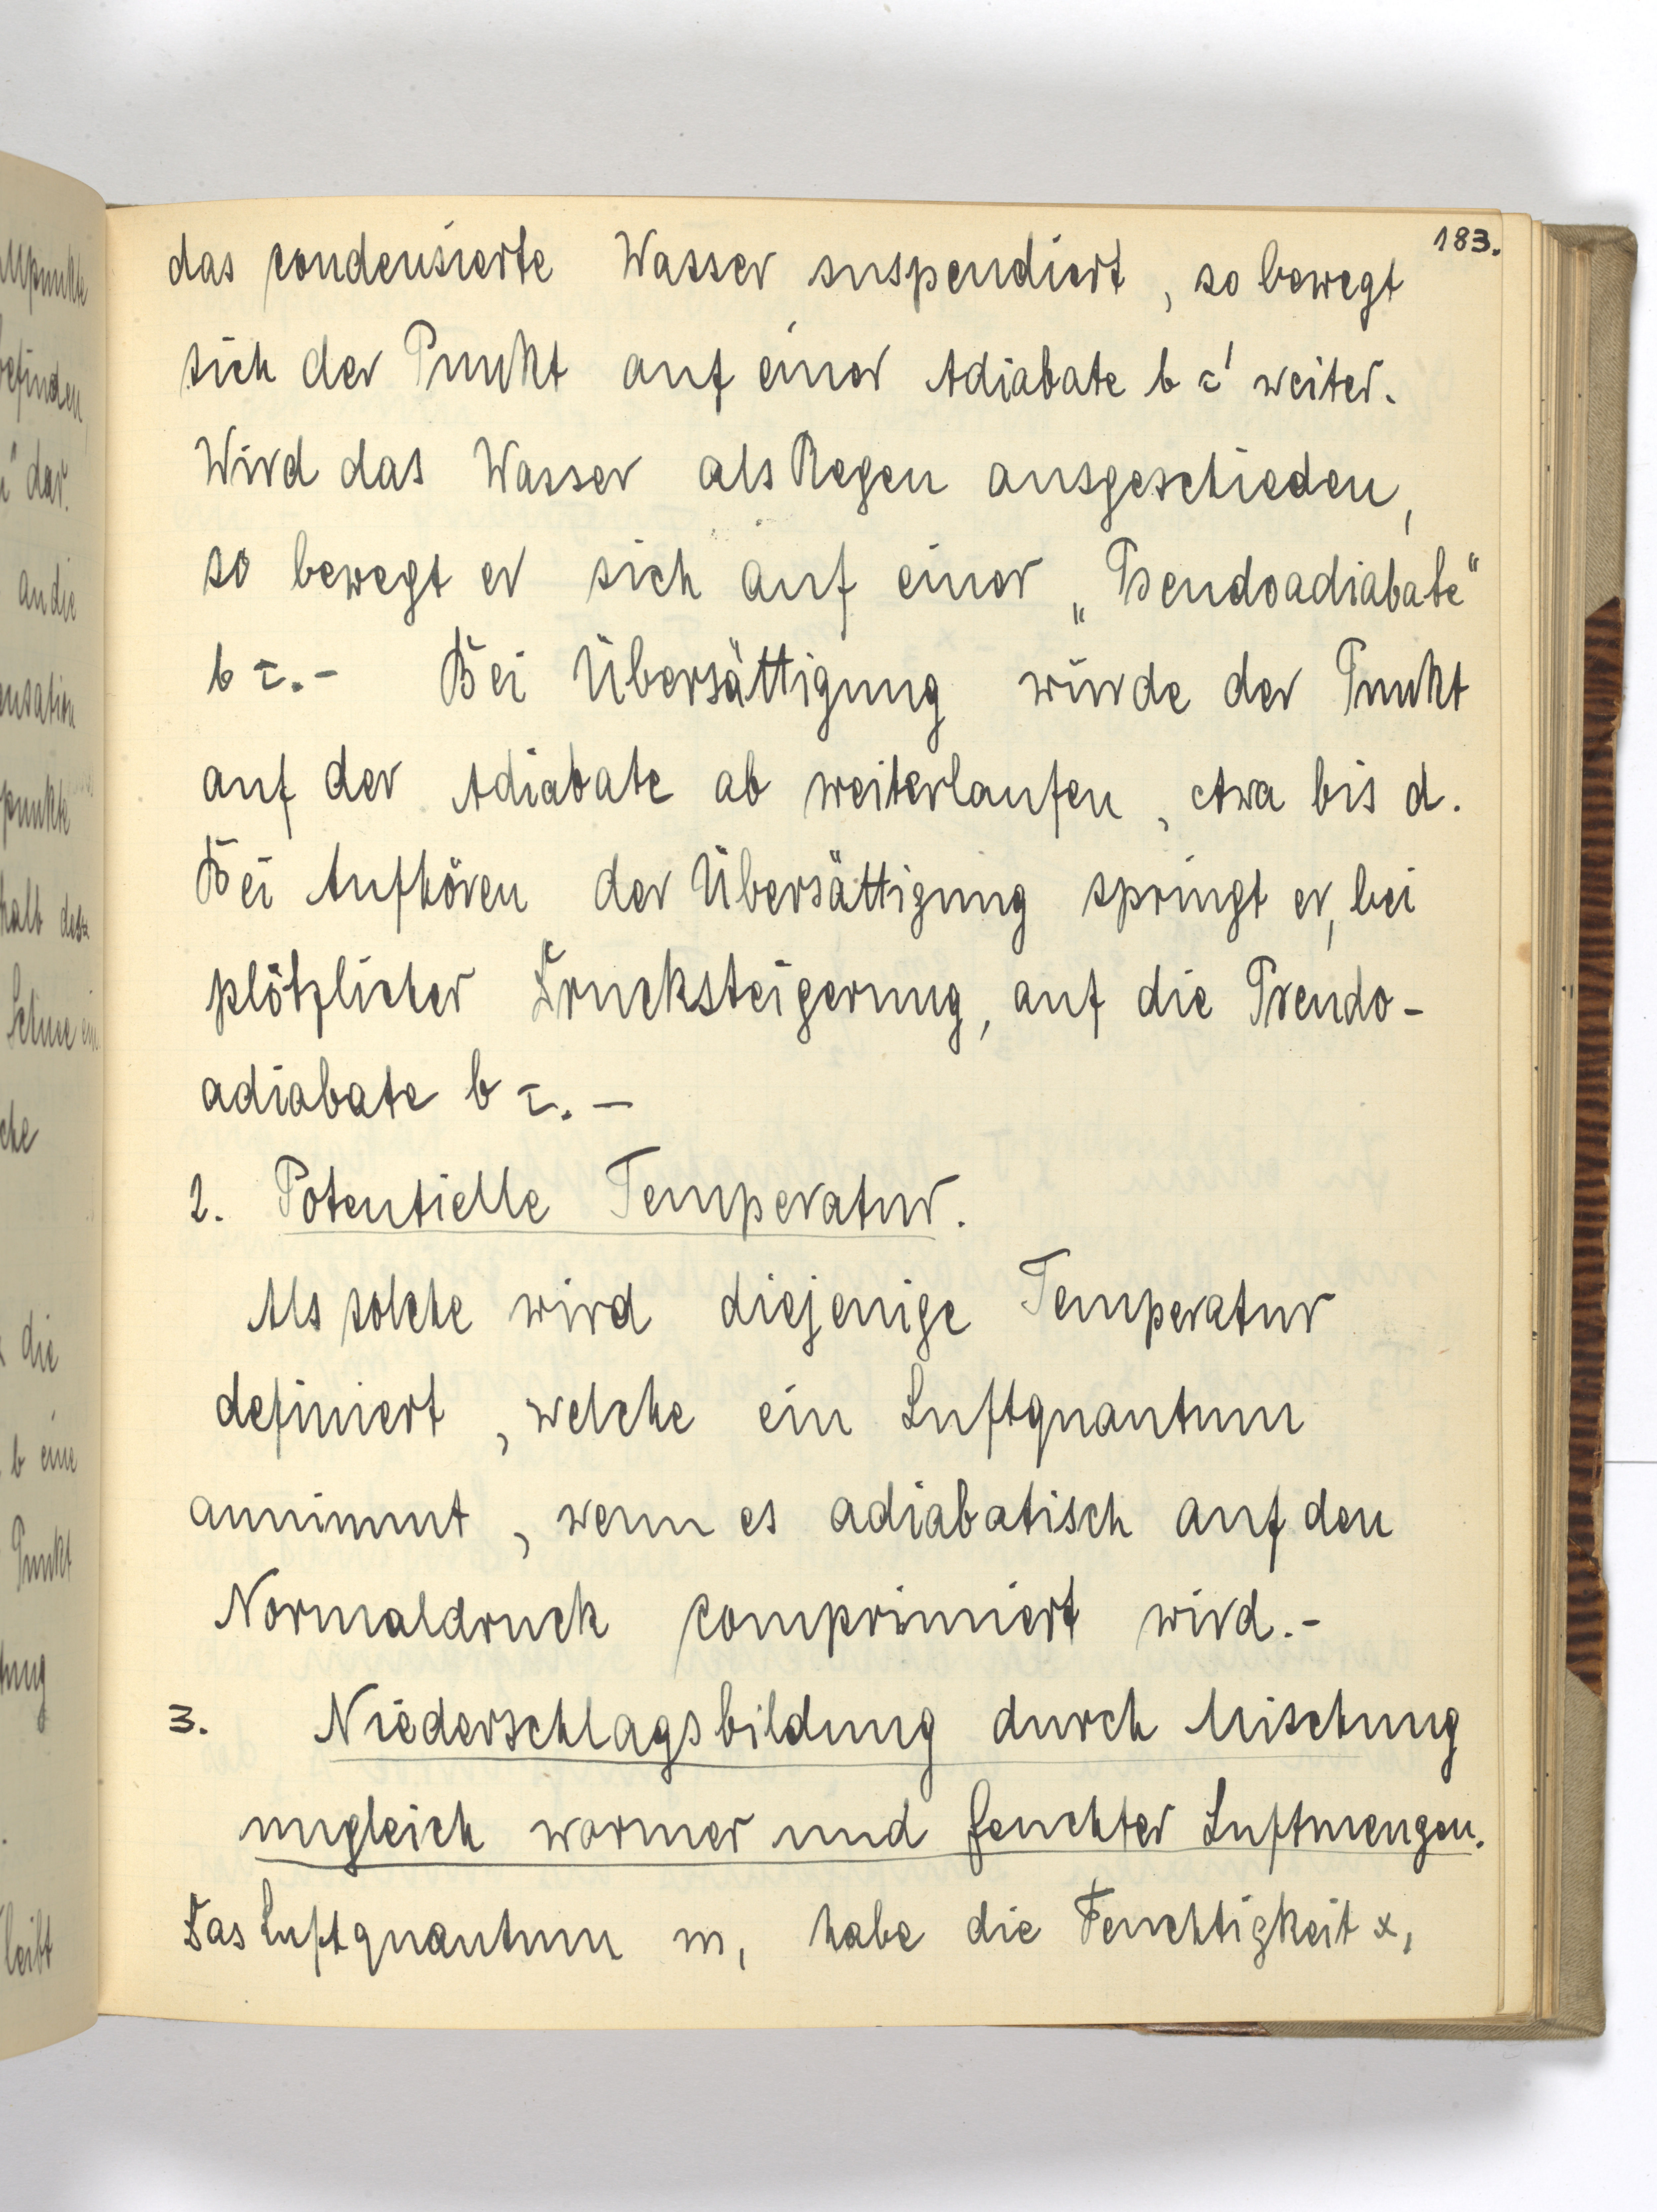 183.
das condensierte Wasser suspendiert, so bewegt
sich der Punkt auf einer Adiabate b c' weiter.
Wird das Wasser als Regen ausgeschieden,
so bewegt er sich auf einer „Pseudoadiabate“
b c.- Bei Übersättigung würde der Punkt
auf der Adiabate ab weiterlaufen, etwa bis d.
Bei Aufhören der Übersättigung springt er, bei
plötzlicher Drucksteigerung, auf die Pseudo-
adiabate b c. –
2. Potentielle Temperatur.
Als solche wird diejenige Temperatur
definiert, welche ein Luftquantum
annimmt, wenn es adiabatisch auf den
Normaldruck comprimiert wird.-
3. Niederschlagsbildung durch Mischung
ungleich warmer und feuchter Luftmengen.
Das Luftquantum m₁ habe die Feuchtigkeit x₁